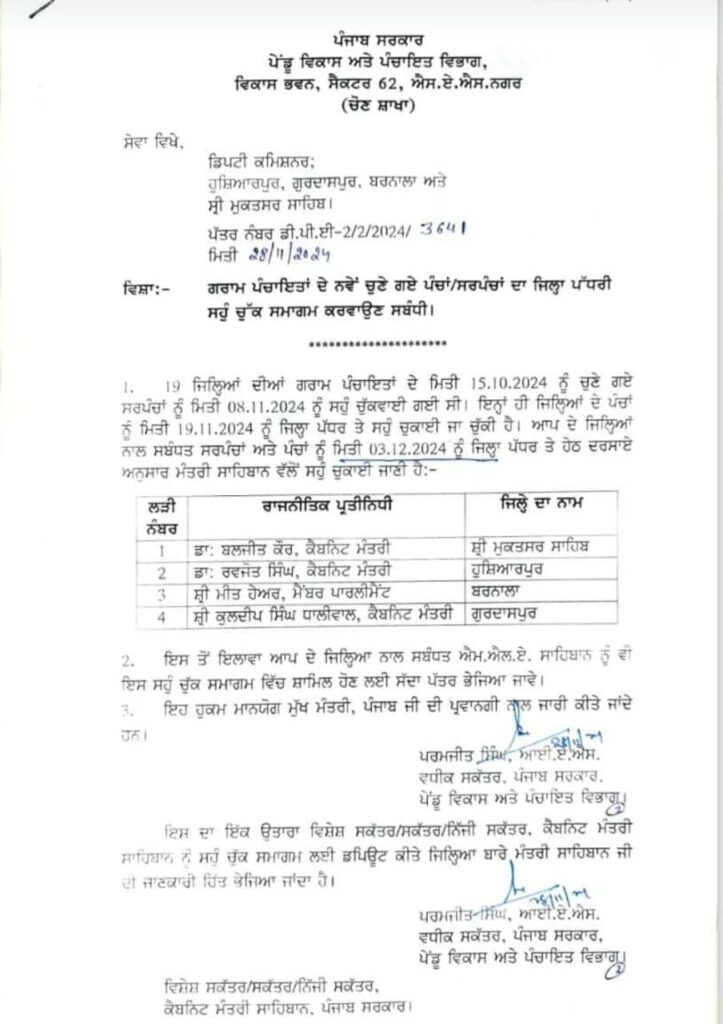 ਪੰਜਾਬ ਸਰਕਾਰ
ਪੇਂਡੂ ਵਿਕਾਸ ਅਤੇ ਪੰਚਾਇਤ ਵਿਭਾਗ,
ਵਿਕਾਸ ਭਵਨ, ਸੈਕਟਰ 62, ਐਸ.ਏ.ਐਸ.ਨਗਰ
(ਚੋਣ ਸ਼ਾਖਾ)
ਸੇਵਾ ਵਿਖੇ,
ਡਿਪਟੀ ਕਮਿਸ਼ਨਰ;
ਹੁਸ਼ਿਆਰਪੁਰ, ਗੁਰਦਾਸਪੁਰ, ਬਰਨਾਲਾ ਅਤੇ
ਸ੍ਰੀ ਮੁਕਤਸਰ ਸਾਹਿਬ।
ਪੱਤਰ ਨੰਬਰ ਡੀ.ਪੀ.ਈ-2/2/2024/ 3641
ਮਿਤੀ 28/11/2024
ਵਿਸ਼ਾ:- ਗਰਾਮ ਪੰਚਾਇਤਾਂ ਦੇ ਨਵੇਂ ਚੁਣੇ ਗਏ ਪੰਚਾਂ/ਸਰਪੰਚਾਂ ਦਾ ਜਿਲ੍ਹਾ ਪੱਧਰੀ
ਸਹੁੰ ਚੁੱਕ ਸਮਾਗਮ ਕਰਵਾਉਣ ਸਬੰਧੀ।
********************
1. 19 ਜਿਲ੍ਹਿਆਂ ਦੀਆਂ ਗਰਾਮ ਪੰਚਾਇਤਾਂ ਦੇ ਮਿਤੀ 15.10.2024 ਨੂੰ ਚੁਣੇ ਗਏ
ਸਰਪੰਚਾਂ ਨੂੰ ਮਿਤੀ 08.11.2024 ਨੂੰ ਸਹੁੰ ਚੁੱਕਵਾਈ ਗਈ ਸੀ। ਇਨ੍ਹਾਂ ਹੀ ਜਿਲ੍ਹਿਆਂ ਦੇ ਪੰਚਾਂ
ਨੂੰ ਮਿਤੀ 19.11.2024 ਨੂੰ ਜਿਲ੍ਹਾ ਪੱਧਰ ਤੇ ਸਹੁੰ ਚੁਕਾਈ ਜਾ ਚੁੱਕੀ ਹੈ। ਆਪ ਦੇ ਜਿਲ੍ਹਿਆਂ
ਨਾਲ ਸਬੰਧਤ ਸਰਪੰਚਾਂ ਅਤੇ ਪੰਚਾਂ ਨੂੰ ਮਿਤੀ 03.12.2024 ਨੂੰ ਜਿਲ੍ਹਾ ਪੱਧਰ ਤੇ ਹੇਠ ਦਰਸਾਏ
ਅਨੁਸਾਰ ਮੰਤਰੀ ਸਾਹਿਬਾਨ ਵੱਲੋਂ ਸਹੁੰ ਚੁਕਾਈ ਜਾਣੀ ਹੈ:-
ਲੜੀ ਨੰਬਰ ਰਾਜਨੀਤਿਕ ਪ੍ਰਤੀਨਿਧੀ ਜਿਲ੍ਹੇ ਦਾ ਨਾਮ
1 ਡਾ: ਬਲਜੀਤ ਕੌਰ, ਕੈਬਨਿਟ ਮੰਤਰੀ ਸ਼੍ਰੀ ਮੁਕਤਸਰ ਸਾਹਿਬ
2 ਡਾ: ਰਵਜੋਤ ਸਿੰਘ, ਕੈਬਨਿਟ ਮੰਤਰੀ ਹੁਸ਼ਿਆਰਪੁਰ
3 ਸ਼੍ਰੀ ਮੀਤ ਹੇਅਰ, ਮੈਂਬਰ ਪਾਰਲੀਮੈਂਟ ਬਰਨਾਲਾ
4 ਸ਼੍ਰੀ ਕੁਲਦੀਪ ਸਿੰਘ ਧਾਲੀਵਾਲ, ਕੈਬਨਿਟ ਮੰਤਰੀ ਗੁਰਦਾਸਪੁਰ
2. ਇਸ ਤੋਂ ਇਲਾਵਾ ਆਪ ਦੇ ਜਿਲ੍ਹਿਆ ਨਾਲ ਸਬੰਧਤ ਐਮ.ਐਲ.ਏ. ਸਾਹਿਬਾਨ ਨੂੰ ਵੀ
ਇਸ ਸਹੁੰ ਚੁੱਕ ਸਮਾਗਮ ਵਿੱਚ ਸ਼ਾਮਿਲ ਹੋਣ ਲਈ ਸੱਦਾ ਪੱਤਰ ਭੇਜਿਆ ਜਾਵੇ।
3. ਇਹ ਹੁਕਮ ਮਾਨਯੋਗ ਮੁੱਖ ਮੰਤਰੀ, ਪੰਜਾਬ ਜੀ ਦੀ ਪ੍ਰਵਾਨਗੀ ਨਾਲ ਜਾਰੀ ਕੀਤੇ ਜਾਂਦੇ
ਹਨ।
ਪਰਮਜੀਤ ਸਿੰਘ, ਆਈ.ਏ.ਐਸ.
ਵਧੀਕ ਸਕੱਤਰ, ਪੰਜਾਬ ਸਰਕਾਰ,
ਪੇਂਡੂ ਵਿਕਾਸ ਅਤੇ ਪੰਚਾਇਤ ਵਿਭਾਗ।
ਇਸ ਦਾ ਇੱਕ ਉਤਾਰਾ ਵਿਸ਼ੇਸ਼ ਸਕੱਤਰ/ਸਕੱਤਰ/ਨਿੱਜੀ ਸਕੱਤਰ, ਕੈਬਨਿਟ ਮੰਤਰੀ
ਸਾਹਿਬਾਨ ਨੂੰ ਸਹੁੰ ਚੁੱਕ ਸਮਾਗਮ ਲਈ ਡਪਿਊਟ ਕੀਤੇ ਜਿਲ੍ਹਿਆ ਬਾਰੇ ਮੰਤਰੀ ਸਾਹਿਬਾਨ ਜੀ
ਦੀ ਜਾਣਕਾਰੀ ਹਿੱਤ ਭੇਜਿਆ ਜਾਂਦਾ ਹੈ।
ਪਰਮਜੀਤ ਸਿੰਘ, ਆਈ.ਏ.ਐਸ.
ਵਧੀਕ ਸਕੱਤਰ, ਪੰਜਾਬ ਸਰਕਾਰ,
ਪੇਂਡੂ ਵਿਕਾਸ ਅਤੇ ਪੰਚਾਇਤ ਵਿਭਾਗ।
ਵਿਸ਼ੇਸ਼ ਸਕੱਤਰ/ਸਕੱਤਰ/ਨਿੱਜੀ ਸਕੱਤਰ,
ਕੈਬਨਿਟ ਮੰਤਰੀ ਸਾਹਿਬਾਨ, ਪੰਜਾਬ ਸਰਕਾਰ।